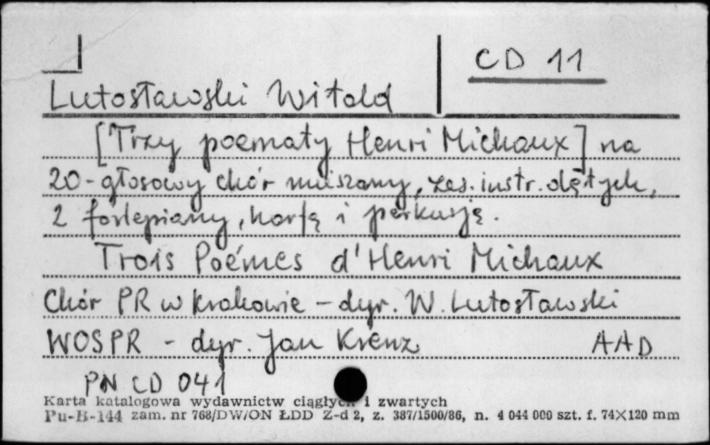 CD 11
Lutosławski Witold
[Trzy poematy Henri Michaux] na
20-głosowy chór mieszany, zes. instr. dętych,
2 fortepiany, harfę i perkusję.
Trois Poémes d'Henri Michaux
Chór PR w Krakowie - dyr. W. Lutosławski
WOSPR - dyr. Jan Krenz AAD
PN CD 041
Karta katalogowa wydawnictw ciągłych i zwartych
Pu-B-144 zam. nr 768/DW/ON ŁDD Z-d 2, z. 387/1500/86, n. 4 044 000 szt. f. 74×120 mm